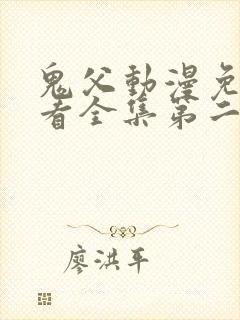 鬼父動漫免
看全集第二
廖洪平